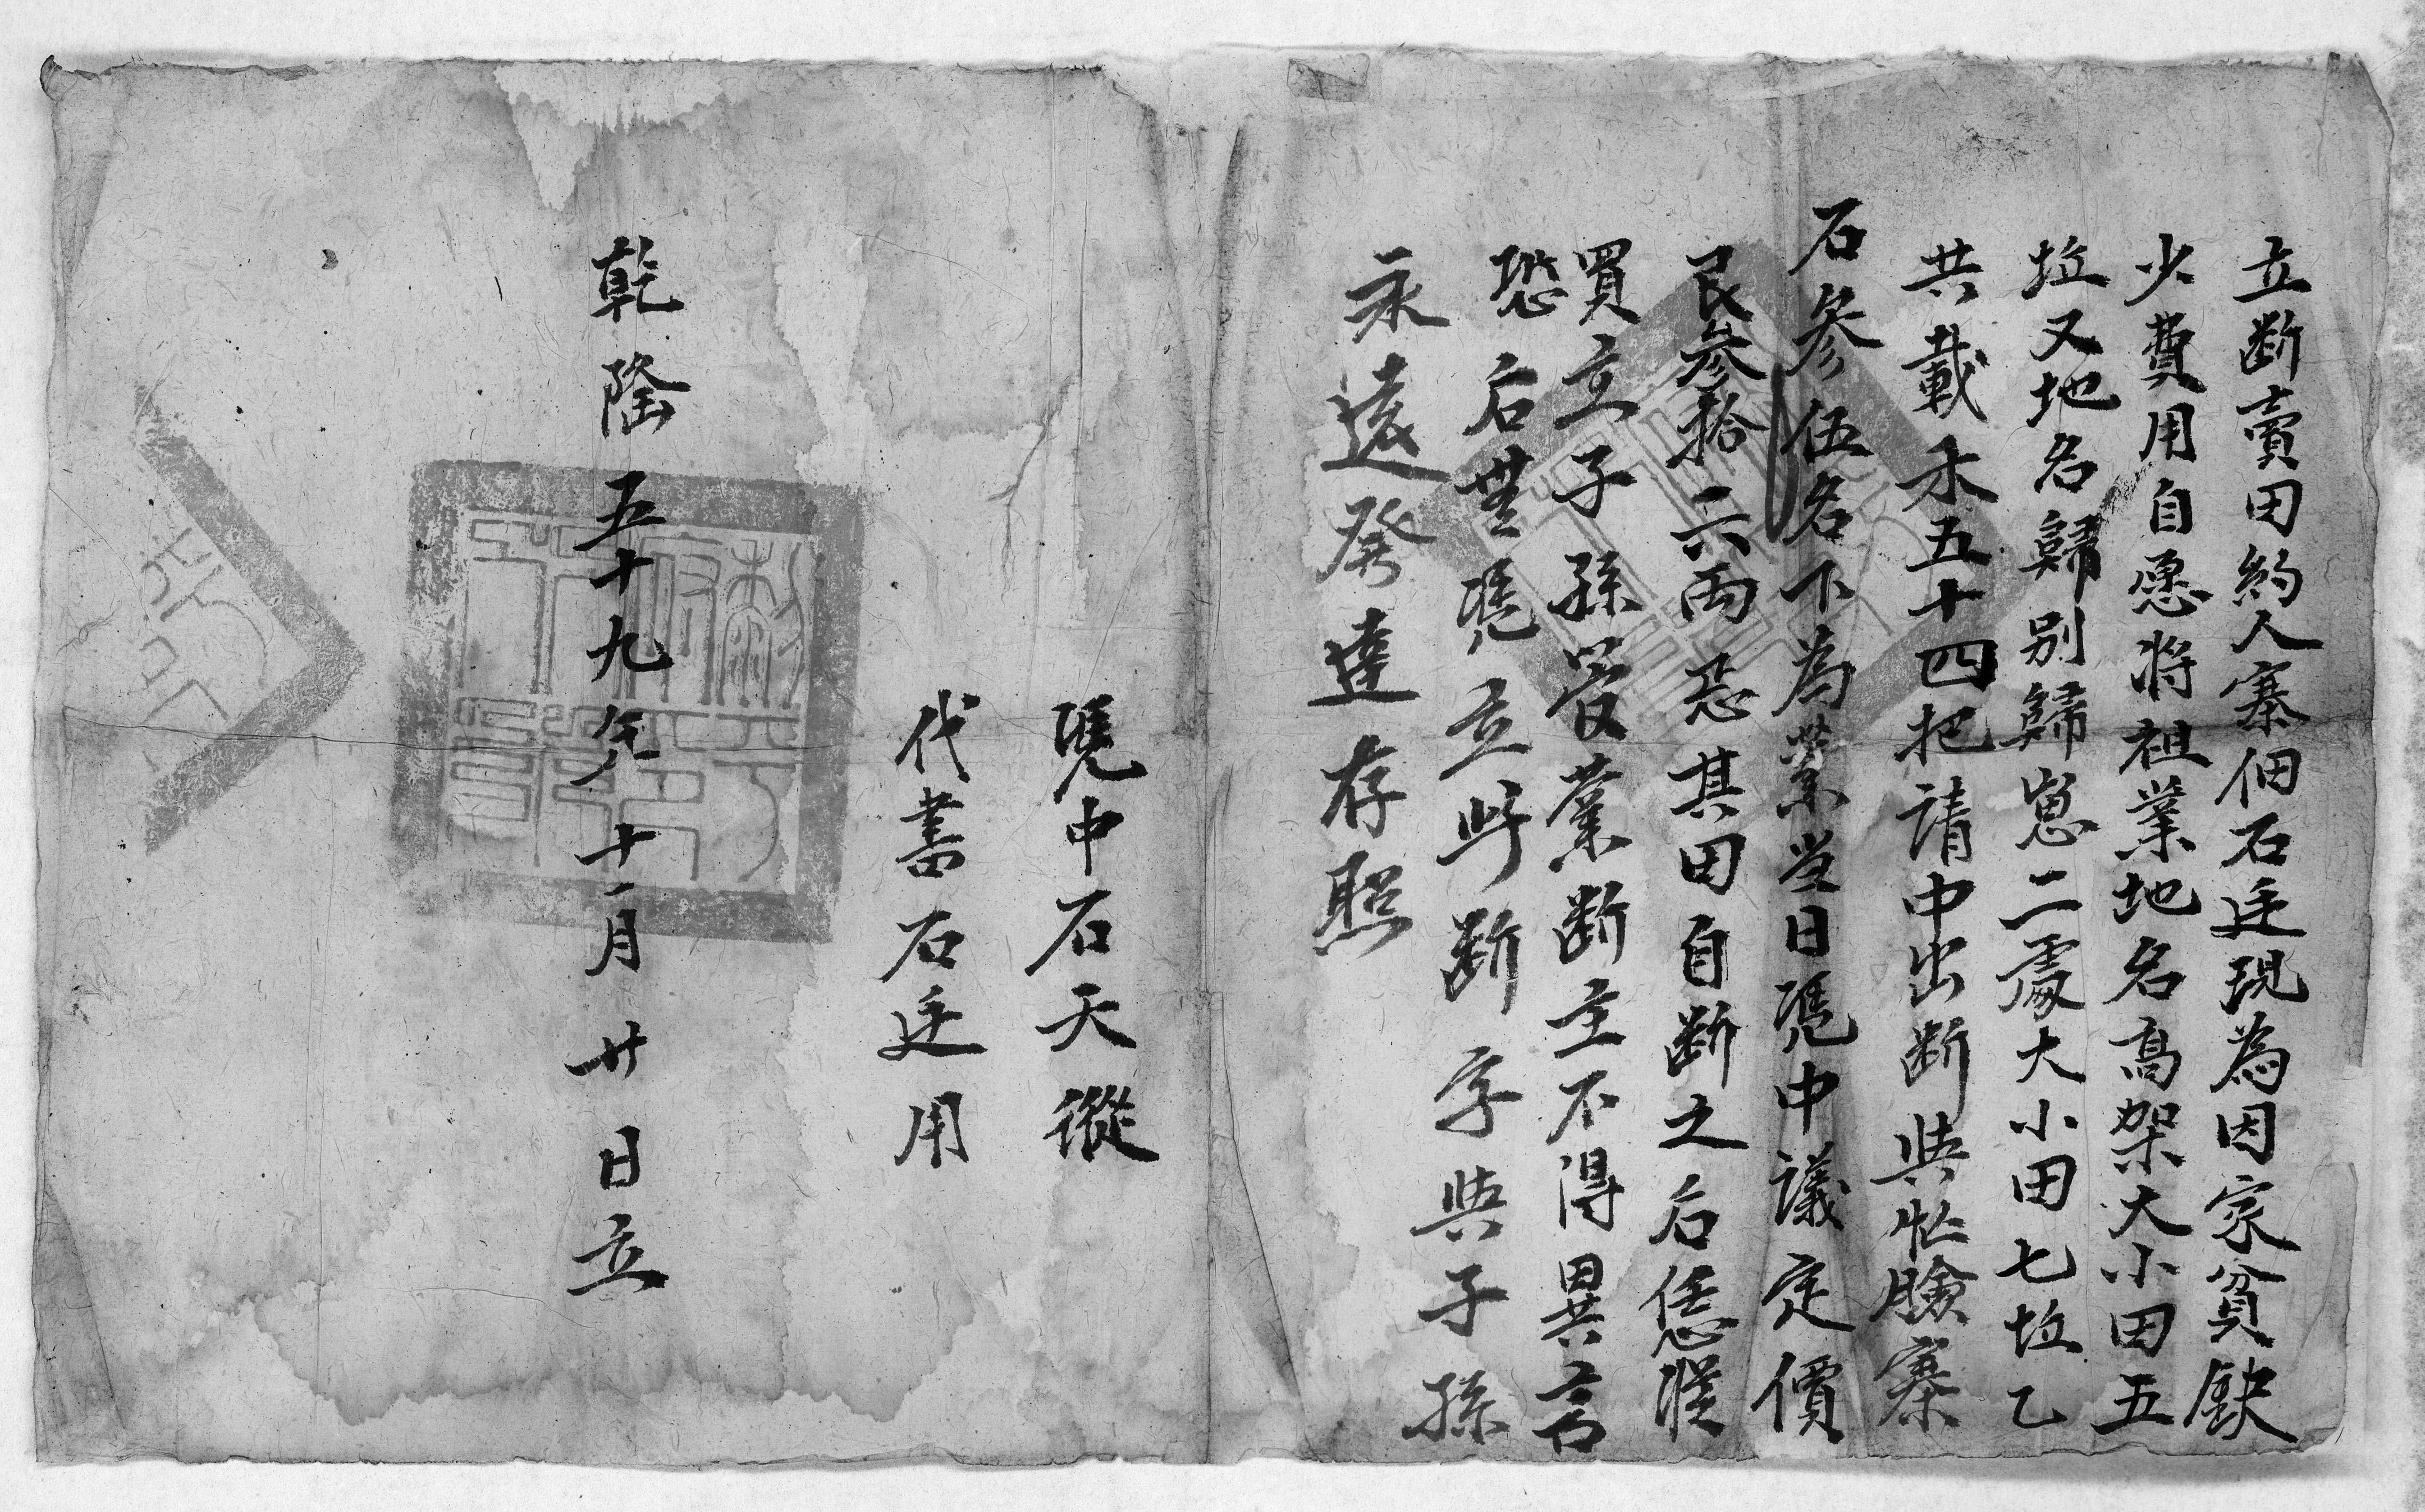 立断賣田約人寨佃石廷現為因家貧缺
少費用自愿將祖業地名髙架大小田五
坵又地名歸别歸崽二處大小田七坵乙
共載禾五十四把請中出断與忙臉寨
石叁伍名下為業當日凴中議定價
艮叁拾六両 其田自断之后恁凴
買立子孫管業断主不得異言
恐后無凴立此断字與子孫
永遠發達存照
凴中石天縱
代書石廷用
乾隆五十九年十一月廿日立